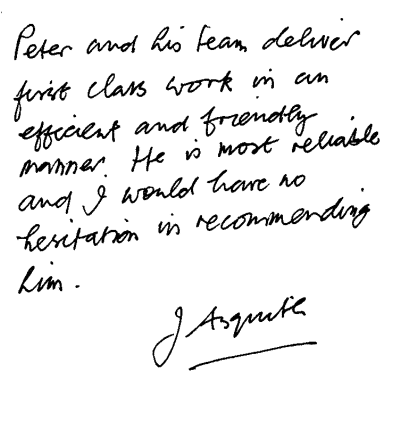 Peter and his team deliver
first class work in an
efficient and friendly
manner. He is most reliable
and I would have no
hesitation in recommending
him.
J Asquith